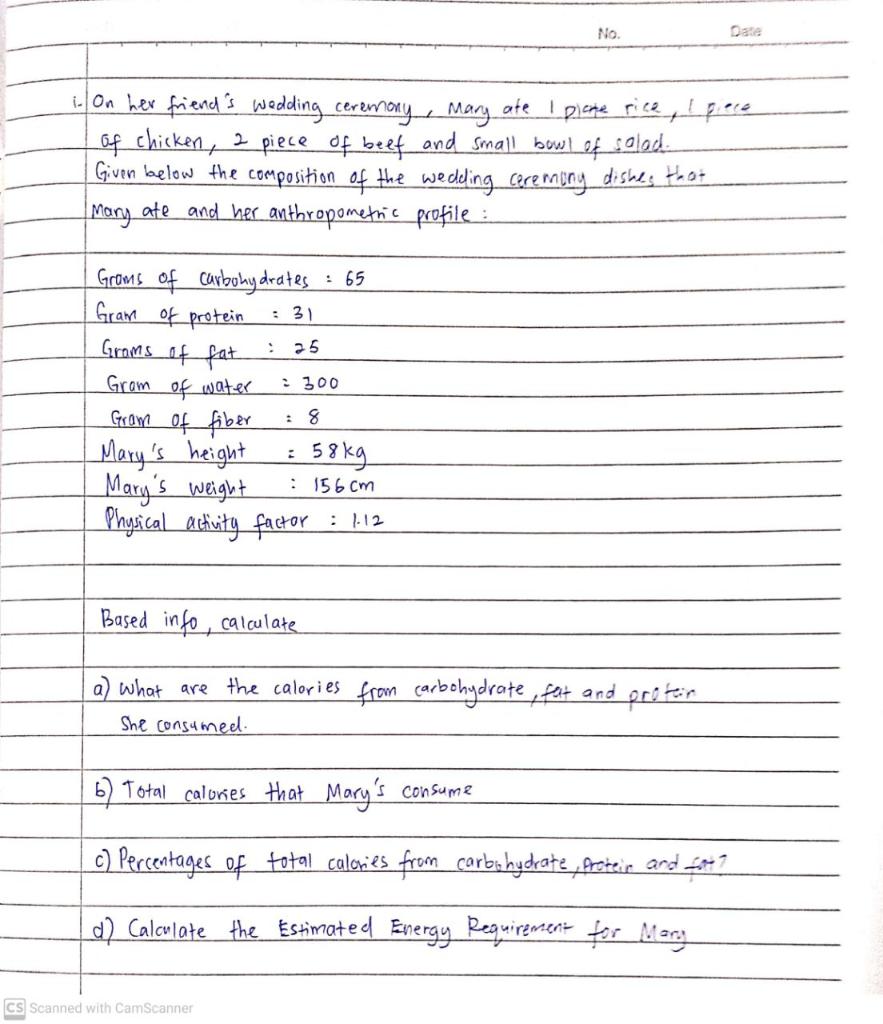 No. Date
i- On her friend's wedding ceremony, Mary ate 1 plate rice, 1 piece
of chicken, 2 piece of beef and small bowl of salad.
Given below the composition of the wedding ceremony dishes that
Mary ate and her anthropometric profile :
Grams of carbohydrates : 65
Gram of protein : 31
Grams of fat : 25
Gram of water : 300
Gram of fiber : 8
Mary's height : 58kg
Mary's weight : 156 cm
Physical activity factor : 1.12
Based info, calculate
a) what are the calories from carbohydrate, fat and protein
She consumed.
b) Total calories that Mary's consume
c) Percentages of total calories from carbohydrate, Protein and fat?
d) Calculate the Estimated Energy Requirement for Mary
CS Scanned with CamScanner